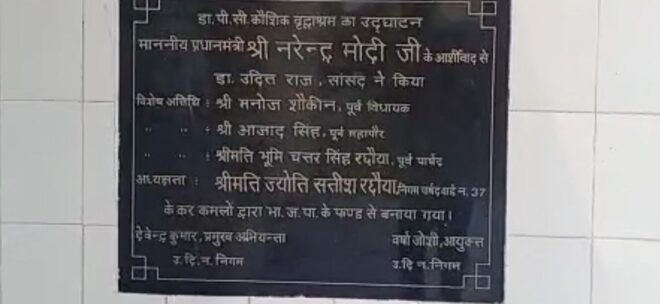 डा.पी.सी.कौशिक वृद्धाश्रम का उद्घाटन
माननीय प्रधानमंत्री श्री नरेन्द्र मोदी जी के आर्शीवाद से
डा. उदित राज , सांसद ने किया
विशेष अतिथि : श्री मनोज शौकीन, पूर्व विधायक
" " : श्री आजाद सिंह, पूर्व महापौर
" " : श्रीमति भूमि चत्तर सिंह रछौया, पूर्व पार्षद
अध्यक्षता : श्रीमति ज्योति सतीश रछौया, निगम पार्षद वार्ड न. 37
के कर कमलों द्वारा भा.ज.पा. के फण्ड से बनाया गया।
देवेन्द्र कुमार, प्रमुख अभियन्ता वर्षा जोशी, आयुक्त
उ.दि.न. निगम उ.दि न. निगम